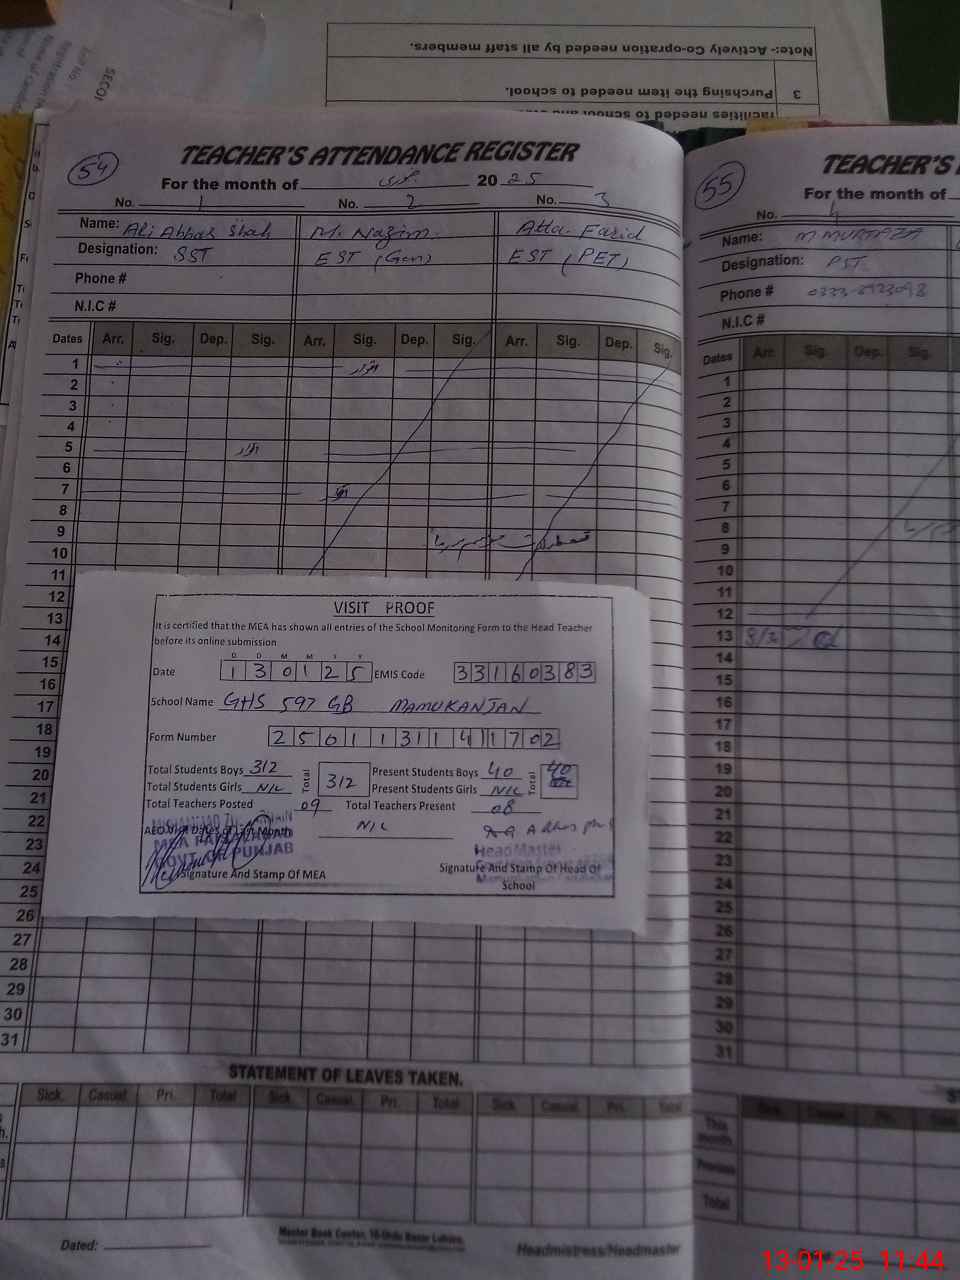 Note:- Actively Co-opration needed by all staff members.
3 Purchsing the item needed to school.
facilities needed to school and
54
TEACHER'S ATTENDANCE REGISTER
For the month of جنوری 2025
No. 1 No. 2 No. 3
Name: Ali Abbas Shah M. Nazim Atta. Farid
Designation: SST EST (Gen) EST (PET)
Phone #
N.I.C #
Dates Arr. Sig. Dep. Sig. Arr. Sig. Dep. Sig. Arr. Sig. Dep. Sig.
1 اتوار
2
3
4
5 اتوار
6
7
8
9 تعطیلات موسم سرما
10
11
12
13
14
15
16
17
18
19
20
21
22
23
24
25
26
27
28
29
30
31
VISIT PROOF
It is certified that the MEA has shown all entries of the School Monitoring Form to the Head Teacher
before its online submission
D D M M Y Y
Date 130125 EMIS Code 33160383
School Name GHS 597 GB MAMUKANJAN
Form Number 2501131141702
Total Students Boys 312 Total 312 Present Students Boys 40 Total 40
Total Students Girls NIL Present Students Girls NIL
Total Teachers Posted 09 Total Teachers Present 08
NIL
GOVT OF PUNJAB
Head Master
Signature And Stamp Of MEA
Signature And Stamp Of Head Of
School
STATEMENT OF LEAVES TAKEN.
Sick. Casual. Pri. Total Sick. Casual. Pri. Total Sick. Casual. Pri. Total
Dated:
Master Book Center, 16-Urdu Bazar Lahore.
Headmistress/Headmaster
55
TEACHER'S
For the month of
No. 4
Name: M MURTAZA
Designation: PST
Phone #
N.I.C #
Dates Arr. Sig. Dep. Sig.
1
2
3
4
5
6
7
8
9
10
11
12
13
14
15
16
17
18
19
20
21
22
23
24
25
26
27
28
29
30
31
Sick. Casual. Pri.
This month
Previous
Total
13-01-25 11:44